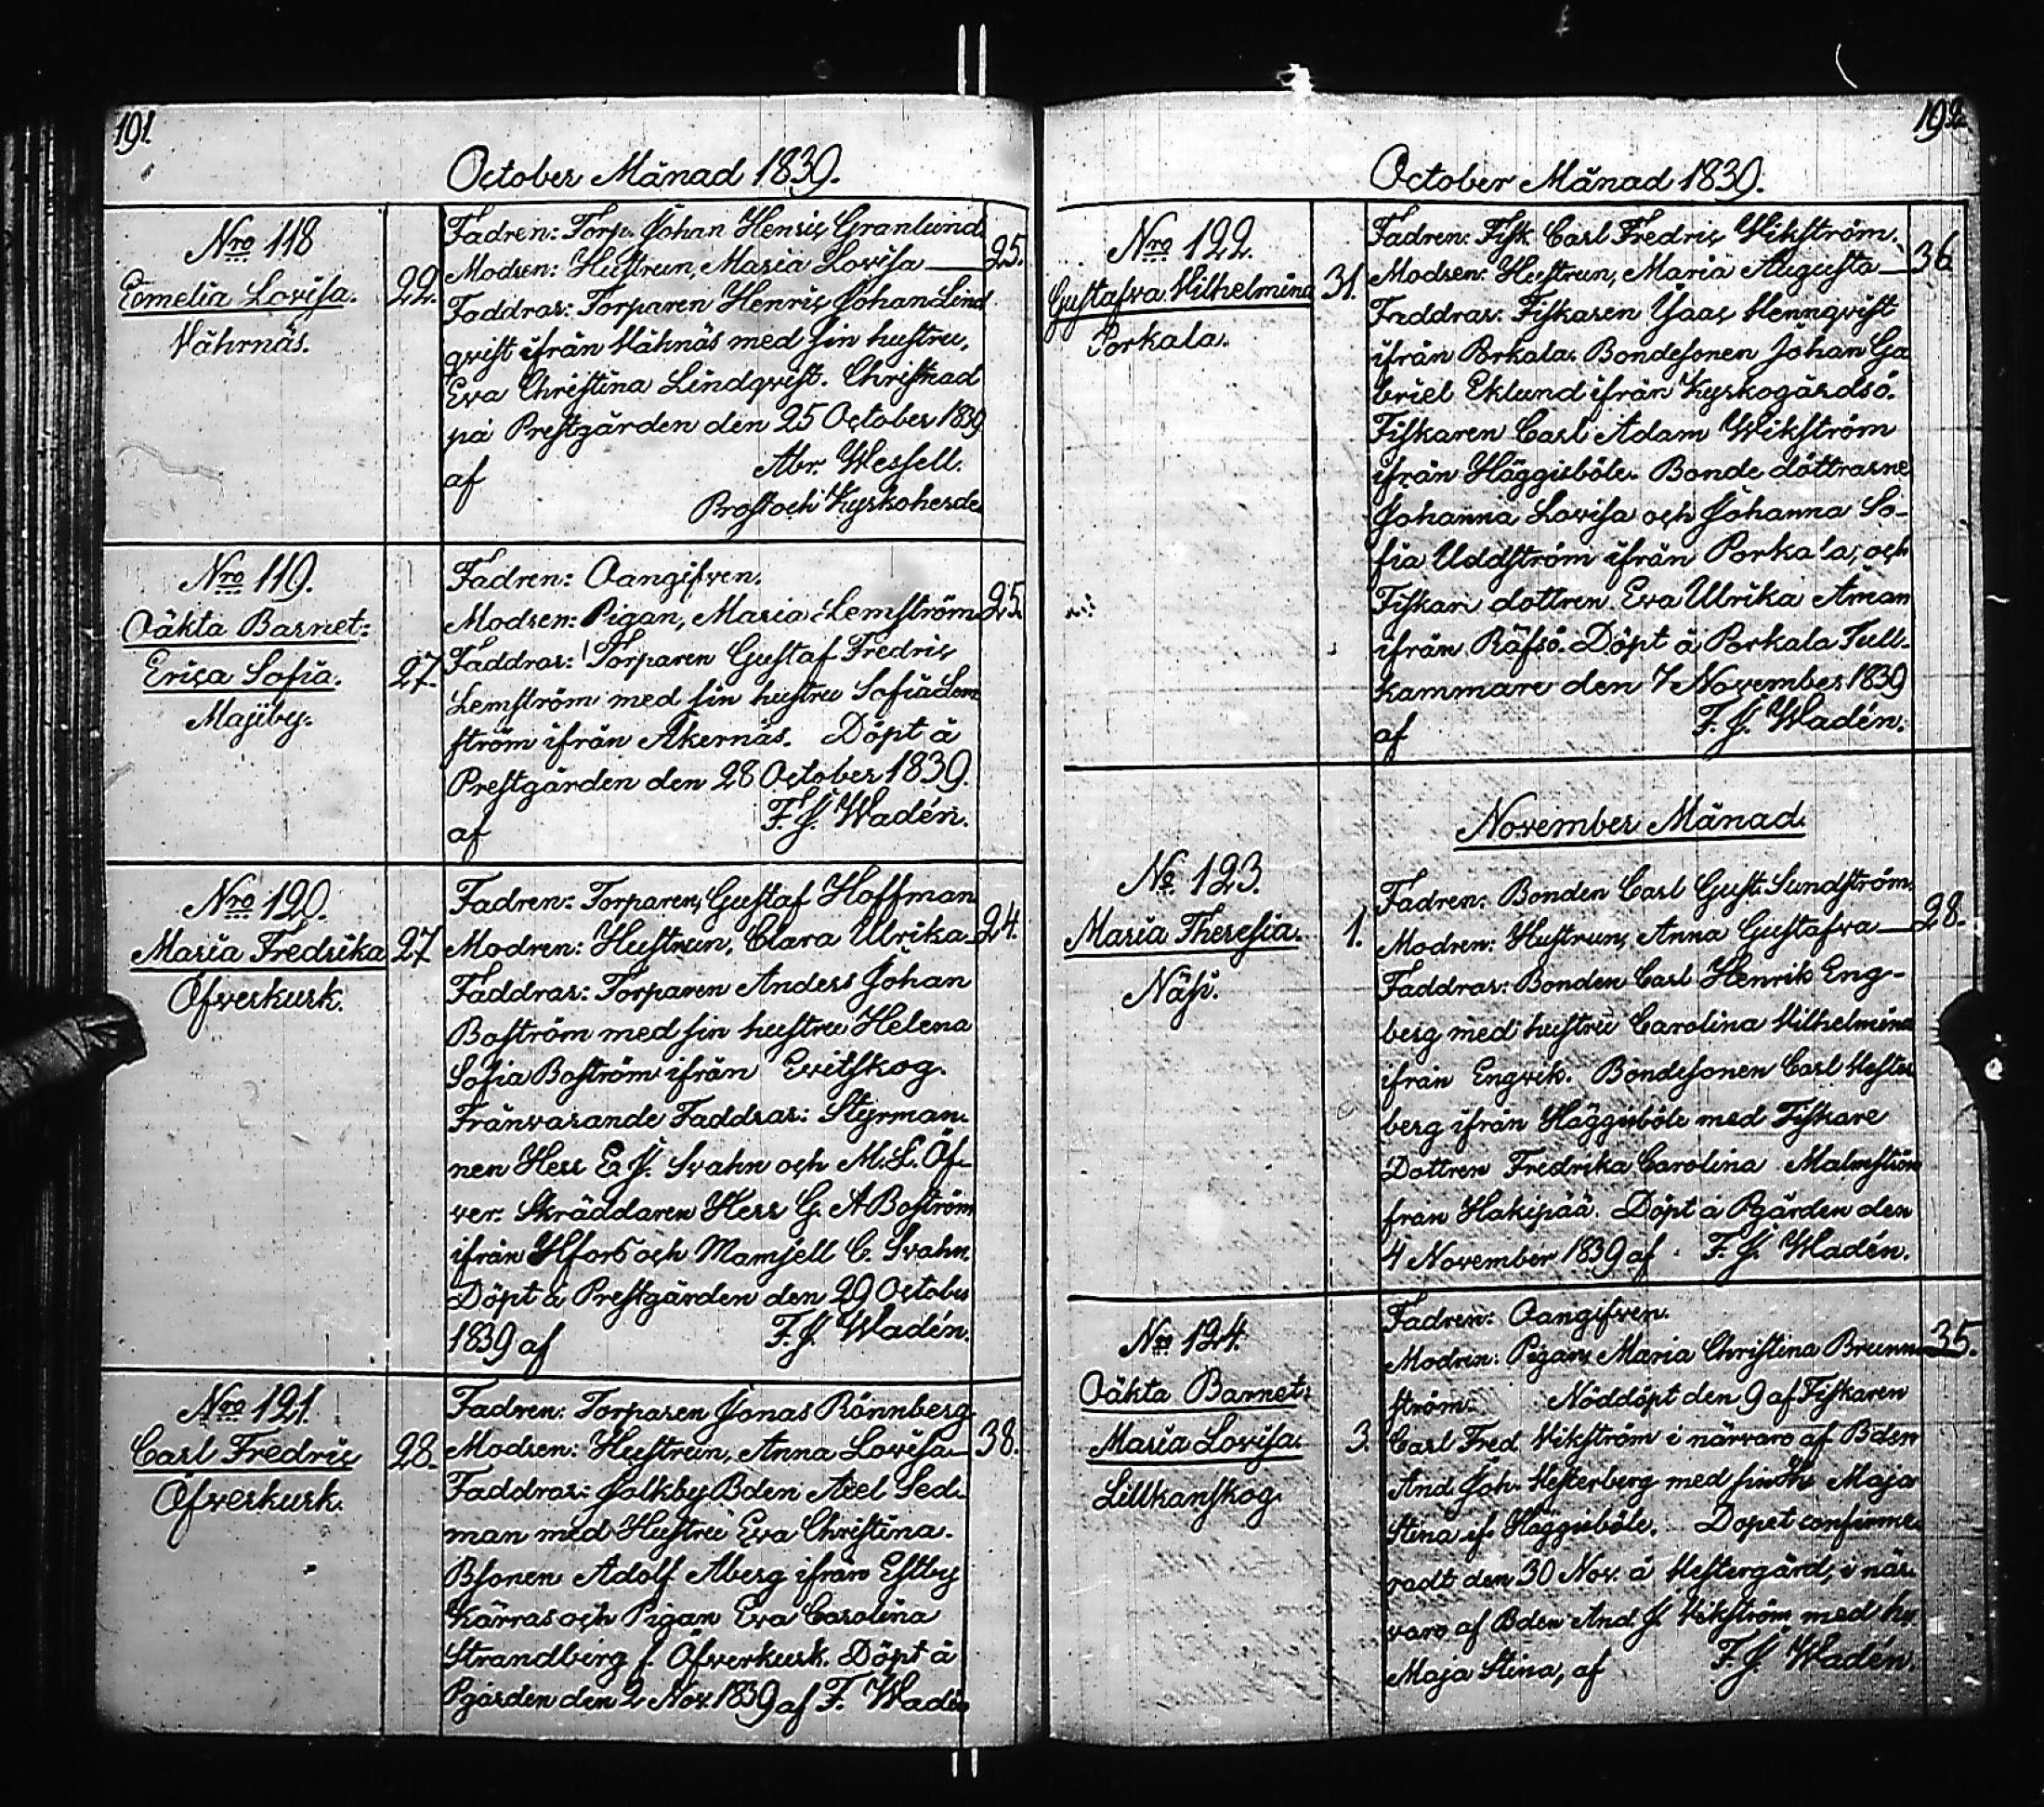 191.
October Månad 1839.
Nro 118
Eomelia Lovisa.
Vährnäs.
22.
Fadren: Torp. Johan Henric Granlund
Modren: Hustrun, Maria Lovisa — 25.
Faddrar: Torparen Henric Johan Lind
qvist ifrån Vähnäs med sin hustru,
Eva Christina Lindqvist. Christnad
på Prestgården den 25 October 1839
af Abr. Wessell.
Prost och Kyrkoherde
Nro 119.
Oäkta Barnet:
Erica Sofia.
Majiby.
27.
Fadren: Oangifven.
Modren: Pigan, Maria Lemström 25.
Faddrar: Torparen Gustaf Fredric
Lemström med sin hustru Sofia Lem
ström ifrån Åkernäs. Döpt å
Prestgården den 28 October 1839.
af F. J. Wadén.
Nro 120.
Maria Fredrika
Öfverkurk.
27
Fadren: Torparen, Gustaf Hoffman
Modren: Hustrun, Clara Ulrika 24.
Faddrar: Torparen Anders Johan
Boström med sin hustru Helena
Sofia Boström ifrån Evitskog.
Frånvarande Faddrar: Styrman-
nen Herr E. J. Svahn och M. L. Öf-
ver. Skräddaren Herr G. A Boström
ifrån Hfors och Mamsell C. Svahn.
Döpt å Prestgården den 29 October
1839 af F. J. Wadén.
Nro 121.
Carl Fredric
Öfverkurk.
28.
Fadren: Torparen Jonas Rönnberg
Modren: Hustrun, Anna Lovisa — 38.
Faddrar: Jolkby Bden Axel Sed-
man med Hustru Eva Christina.
Bsonen Adolf Åberg ifrån Estby
Kärras och Pigan Eva Carolina
Strandberg f. Öfverkurk. Döpt å
Pgården den 2 Nov. 1839 af F. Wadén
192.
October Månad 1839.
Nro 122.
Gustafva Vilhelmina
Porkala.
31.
Fadren: Fisk. Carl Fredric Vikström.
Modren: Hustrun, Maria Augusta — 36.
Faddrar: Fiskaren Isaac Hennqvist
ifrån Porkala. Bondesonen Johan Ga
briel Eklund ifrån Kyrkogårdsö.
Fiskaren Carl Adam Wikström
ifrån Häggisböle. Bonde döttrarne
Johanna Lovisa och Johanna So-
fia Uddström ifrån Porkala, och
Fiskare dottren Eva Ulrika Åman
ifrån Räfsö. Döpt å Porkala Tull-
kammare den 7 November 1839
af F. J. Wadén.
November Månad.
No 123.
Maria Theresia.
Näse.
1.
Fadren: Bonden Carl Gust. Sundström
Modren: Hustrun, Anna Gustafva — 28.
Faddrar: Bonden Carl Henrik Eng-
berg med hustru Carolina Vilhelmina
ifrån Engvik. Bondesonen Carl Vester
berg ifrån Häggisböle med Fiskare
Dottren Fredrika Carolina Malmström
från Hakipää. Döpt å Pgården den
4 November 1839 af F. J. Wadén.
Nro 124.
Oäkta Barnet:
Maria Lovisa.
Lillkanskog.
3.
Fadren: Oangifven.
Modren: Pigan, Maria Christina Brunn 35.
ström. Nöddöpt den 9 af Fiskaren
Carl Fred. Vikström i närvaro af Bden
And. Joh. Vesterberg med sin h. Maja
Stina if. Häggisböle. Dopet confirme-
radt den 30 Nov. å Vestergård, i när-
varo af Bden And. J. Vikström med hu
Maja Stina, af F. J. Wadén.